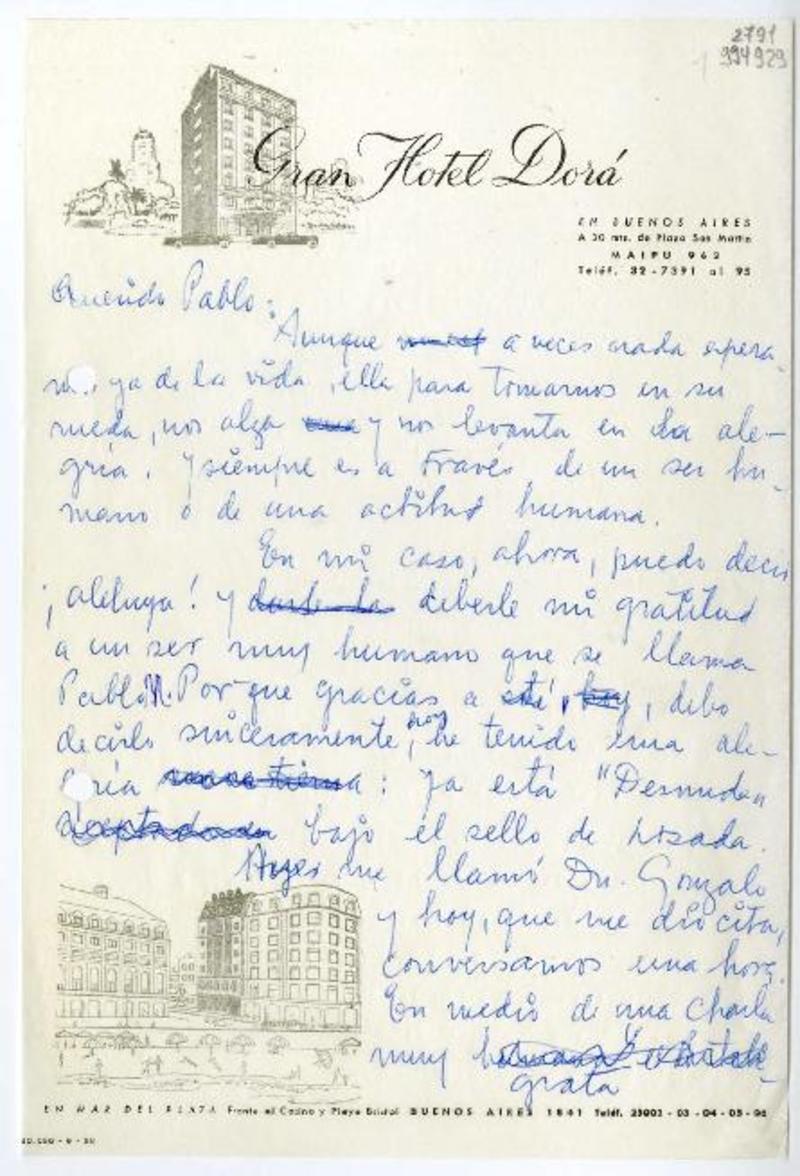 2791
994929
Gran Hotel Dorá
EN BUENOS AIRES
A 30 mts. de Plaza San Martin
MAIPU 963
Teléf. 32-7391 al 95
Querido Pablo:
Aunque a veces nada espera
ya de la vida, ella para tomarnos en su
rueda, nos alza y nos levanta en la ale-
gría. Y siempre es a través de un ser hu-
mano o de una actitud humana.
En mi caso, ahora, puedo decir
¡aleluya! y deberle mi gratitud
a un ser muy humano que se llama
Pablo N. Porque gracias a , debo
decirlo sinceramente, hoy he tenido una ale-
gría : ya está "Desnuda"
bajo el sello de Losada.
Ayer me llamó Dn. Gonzalo
y hoy, que me dio cita,
conversamos una hora.
En medio de una charla
muy
grata
EN MAR DEL PLATA Frente al Casino y Playa Bristol BUENOS AIRES 1841 Teléf. 23002 - 03 - 04 - 05 - 06